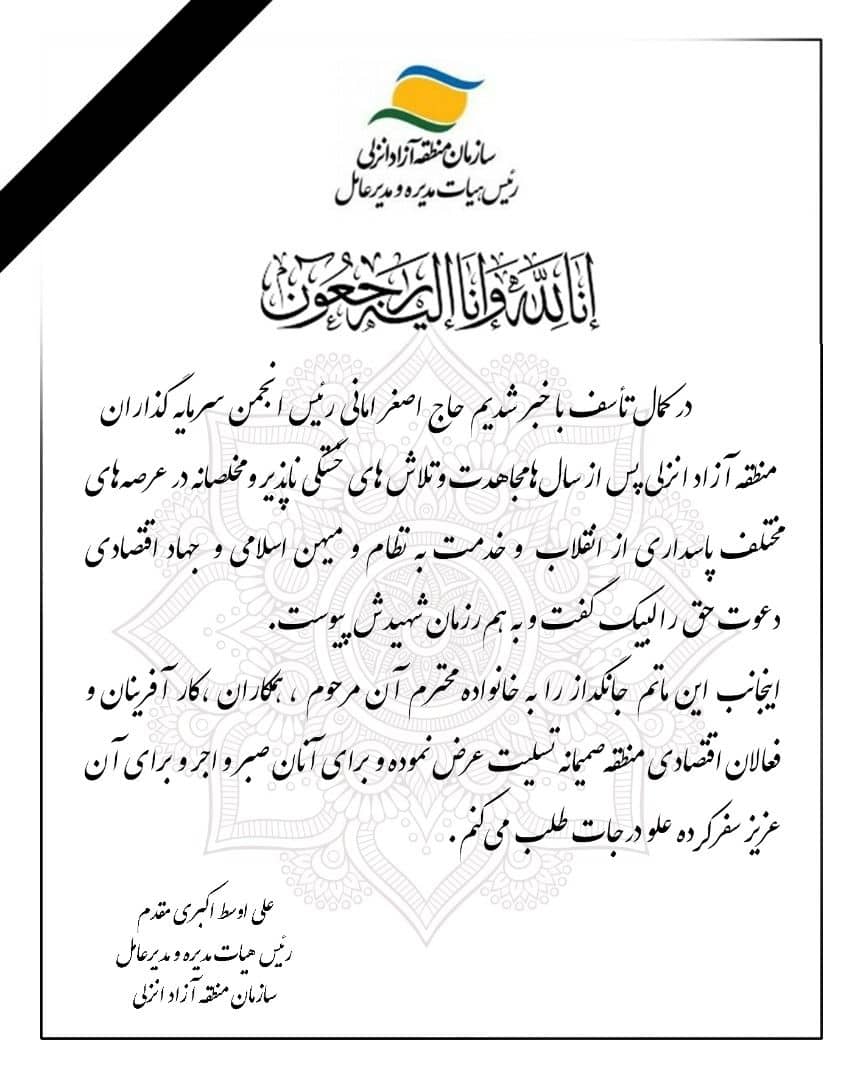 سازمان منطقه آزاد انزلی
رئیس هیات مدیره و مدیرعامل
إنا لله وإنا إلیه راجعون
در کمال تأسف با خبر شدیم حاج اصغر امانی رئیس انجمن سرمایه گذاران
منطقه آزاد انزلی پس از سال ها مجاهدت و تلاش های خستگی ناپذیر و مخلصانه در عرصه های
مختلف پاسداری از انقلاب و خدمت به نظام و میهن اسلامی و جهاد اقتصادی
دعوت حق را لبیک گفت و به هم رزمان شهیدش پیوست.
اینجانب این ماتم جانگداز را به خانواده محترم آن مرحوم ، همکاران ،کار آفرینان و
فعالان اقتصادی منطقه صمیمانه تسلیت عرض نموده و برای آنان صبر و اجر و برای آن
عزیز سفر کرده علو درجات طلب می کنم .
علی اوسط اکبری مقدم
رئیس هیات مدیره و مدیرعامل
سازمان منطقه آزاد انزلی